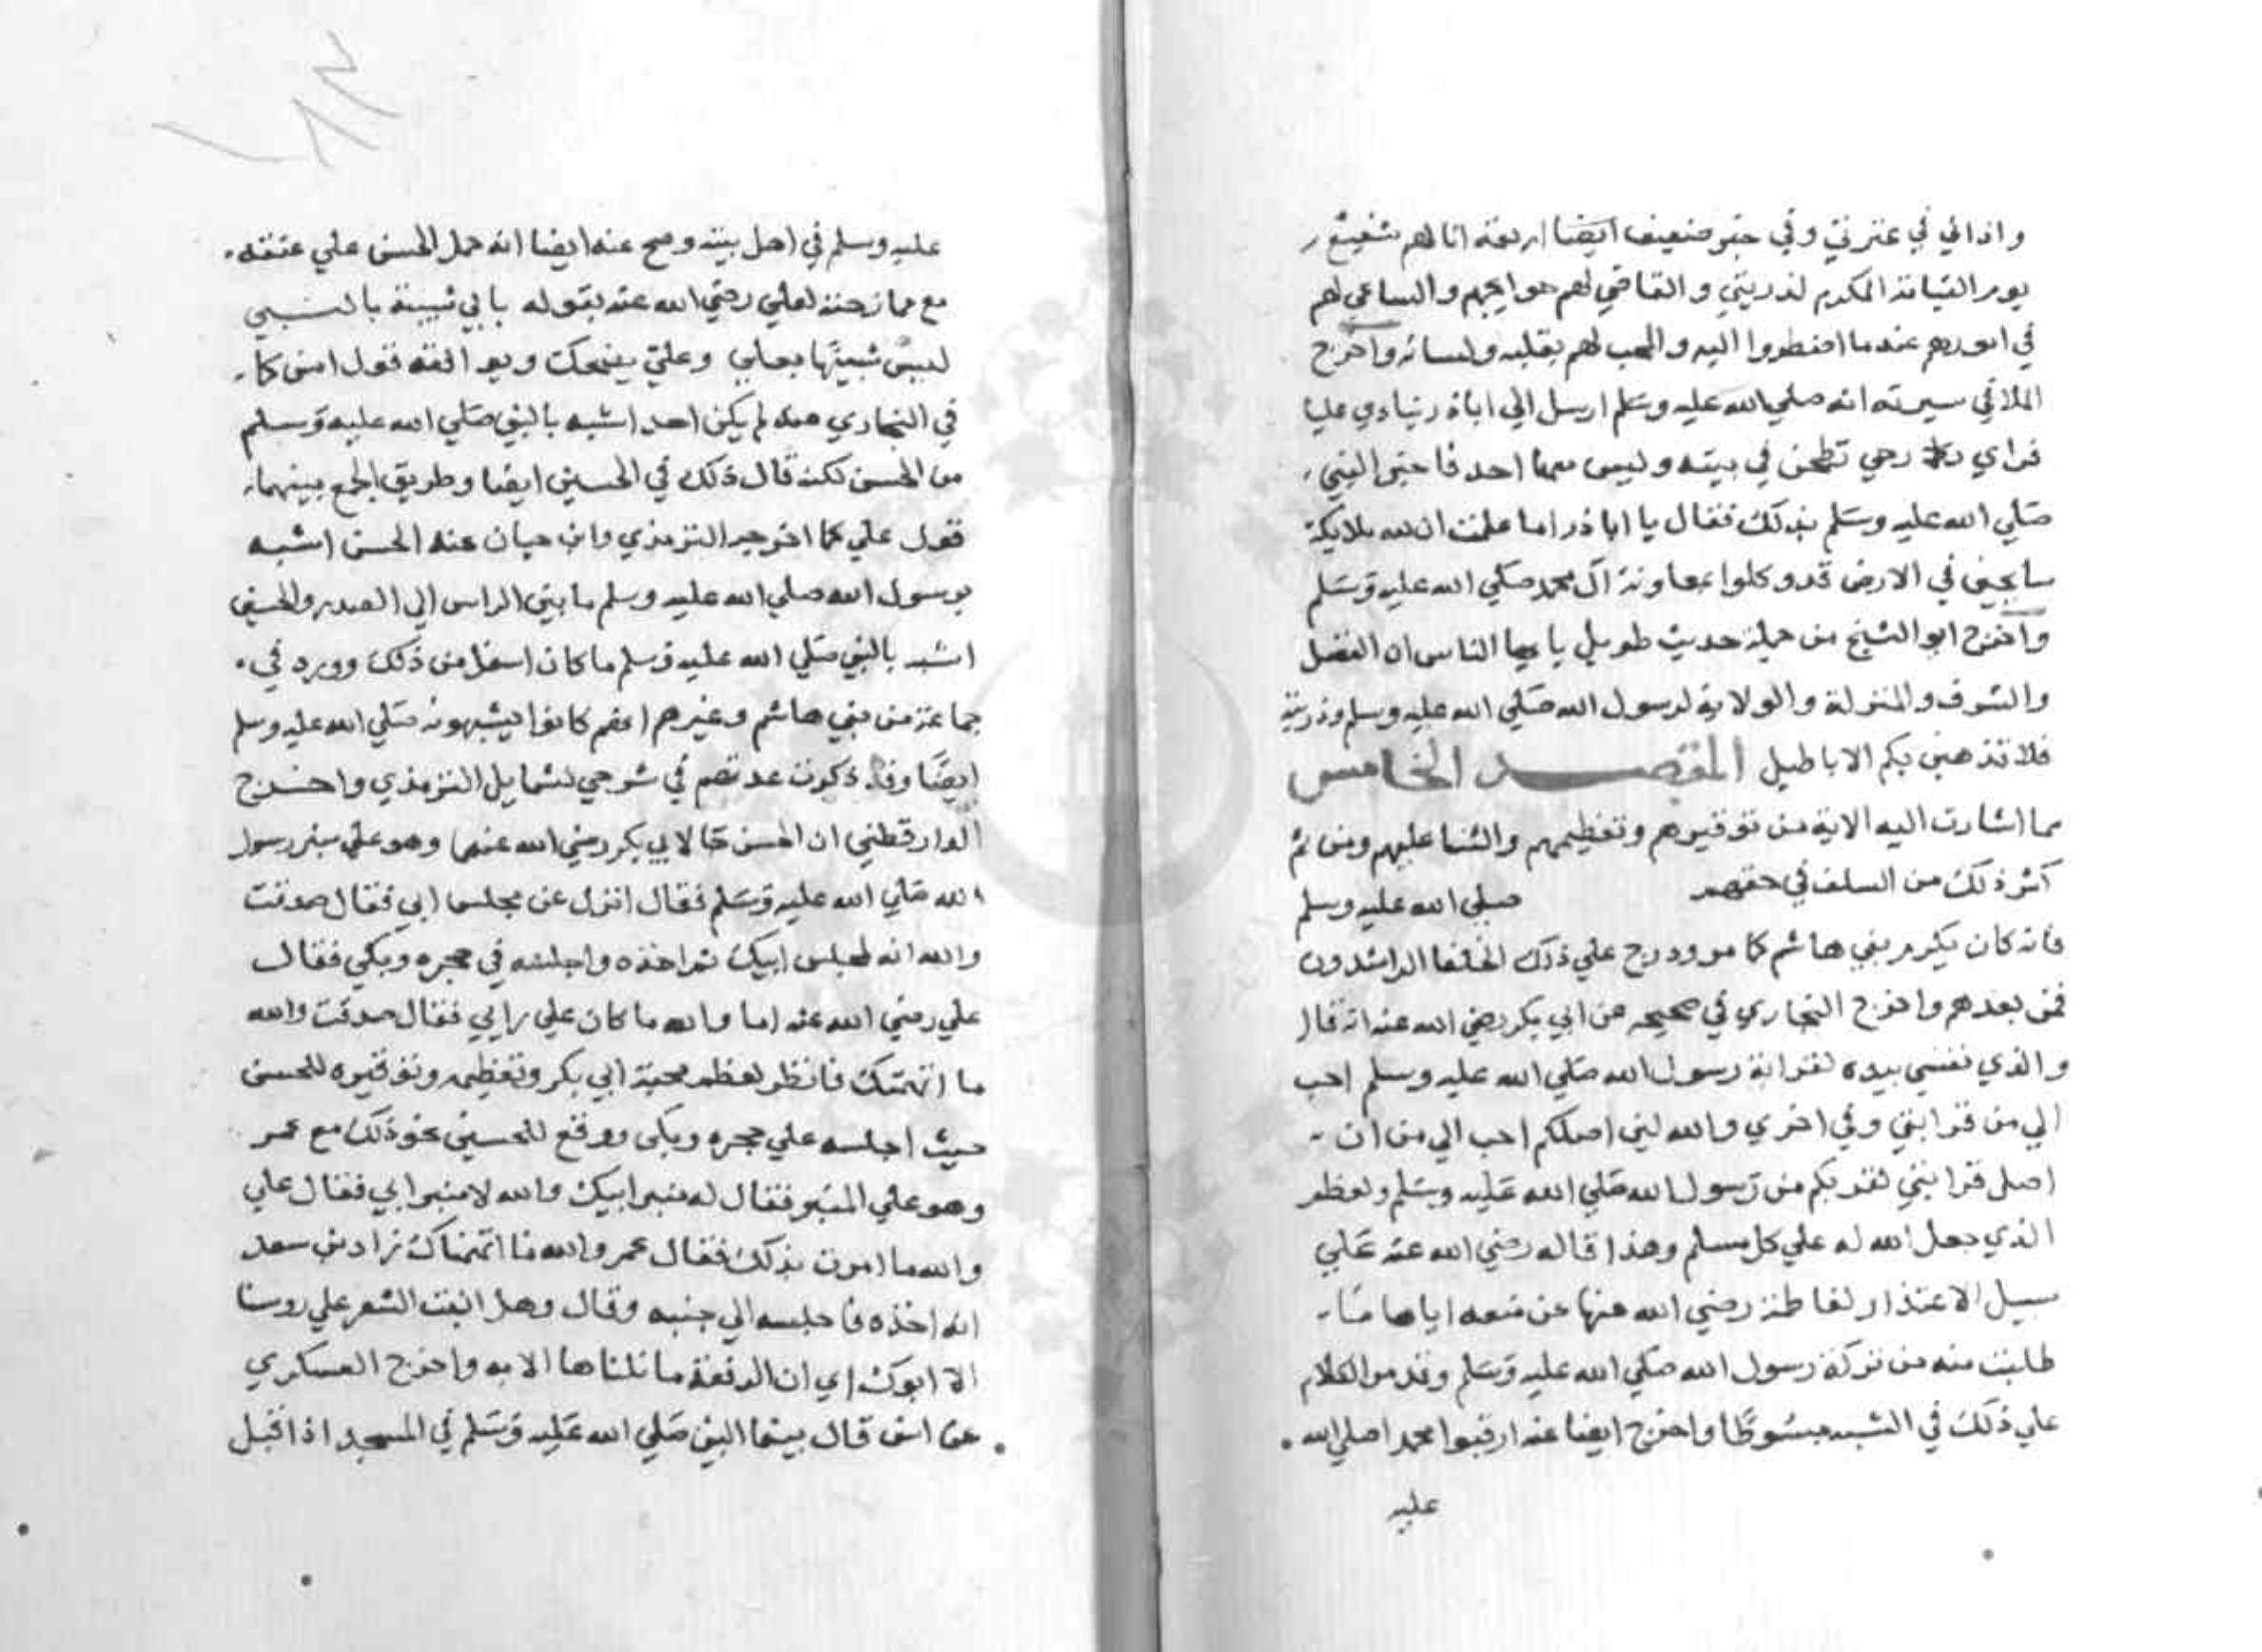 واذاني في عترتي وفي خبر ضعيف ايضا اربعة انا لهم شفيع
يوم القيامة المكرم لذريتي والقاضي لهم حوايجهم والساعي لهم
في امورهم عندما اضطروا اليه والمحب لهم بقلبه ولسانه واخرج
الملا في سيرته انه صلي الله عليه وسلم ارسل الي اباذر ينادي عليا
فراي رحي تطحن في بيته وليس معها احد فاخبر النبي
صلي الله عليه وسلم بذلك فقال يا اباذر اما علمت ان لله ملايكة
سايحين في الارض قد وكلوا بمعاونة آل محمد صلي الله عليه وسلم
واخرج ابو الشيخ من جملة حديث طويل يا ايها الناس ان الفضل
والشرف والمنزلة والولاية لرسول الله صلي الله عليه وسلم وذريته
فلا تذهبن بكم الاباطيل المقصد الخامس
مما اشارت اليه الاية من توقيرهم وتعظيمهم والثنا عليهم ومن ثم
كثر ذلك من السلف في حقهم صلي الله عليه وسلم
فانه كان يكرم بني هاشم كما مر ودرج علي ذلك الخلفا الراشدون
فمن بعدهم واخرج البخاري في صحيحه عن ابي بكر رضي الله عنه انه قال
والذي نفسي بيده لقرابة رسول الله صلي الله عليه وسلم احب
الي من قرابتي وفي اخري والله لئن اصلكم احب الي من ان
اصل قرابتي لقربكم من رسول الله صلي الله عليه وسلم ولعظم
الذي جعل الله له علي كل مسلم وهذا قاله رضي الله عنه علي
سبيل الاعتذار لفاطمة رضي الله عنها عن منعه اياها ما
طلبت منه من تركة رسول الله صلي الله عليه وسلم وقد مر الكلام
علي ذلك في الشبه مبسوطا واخرج ايضا عنه ارقبوا محمدا صلي الله
عليه
عليه وسلم في اهل بيته وصح عنه ايضا انه حمل الحسن علي عنقه
مع ممازحته لعلي رضي الله عنه بقوله بابي شبيه بالنبي
ليس شبيها بعلي وعلي يضحك ويوافقه قول انس كما
في البخاري عنه لم يكن احد اشبه بالنبي صلي الله عليه وسلم
من الحسن لكنه قال ذلك في الحسين ايضا وطريق الجمع بينهما
قول علي كما اخرجه الترمذي وابن حبان عنه الحسن اشبه
برسول الله صلي الله عليه وسلم ما بين الراس الي الصدر والحسين
اشبه بالنبي صلي الله عليه وسلم ما كان اسفل من ذلك وورد في
جماعة من بني هاشم وغيرهم انهم كانوا يشبهونه صلي الله عليه وسلم
ايضا وقد ذكرت عدتهم في شرحي لشمايل الترمذي واخرج
الدارقطني ان الحسن جا لابي بكر رضي الله عنهما وهو علي منبر رسول
الله صلي الله عليه وسلم فقال انزل عن مجلس ابي فقال صدقت
والله انه لمجلس ابيك ثم اخذه واجلسه في حجره وبكي فقال
علي رضي الله عنه اما والله ما كان علي رايي فقال صدقت والله
ما اتهمتك فانظر لعظم محبة ابي بكر وتعظيمه وتوقيره للحسن
حيث اجلسه علي حجره وبكي ووقع للحسين نحو ذلك مع عمر
وهو علي المنبر فقال له منبر ابيك والله لا منبر ابي فقال علي
والله ما امرت بذلك فقال عمر والله ما اتهمناك زاد بن سعد
انه اخذه فاجلسه الي جنبه وقال وهل انبت الشعر علي روسنا
الا ابوك اي ان الرفعة ما نلناها الا به واخرج العسكري
عن انس قال بينما النبي صلي الله عليه وسلم في المسجد اذ اقبل